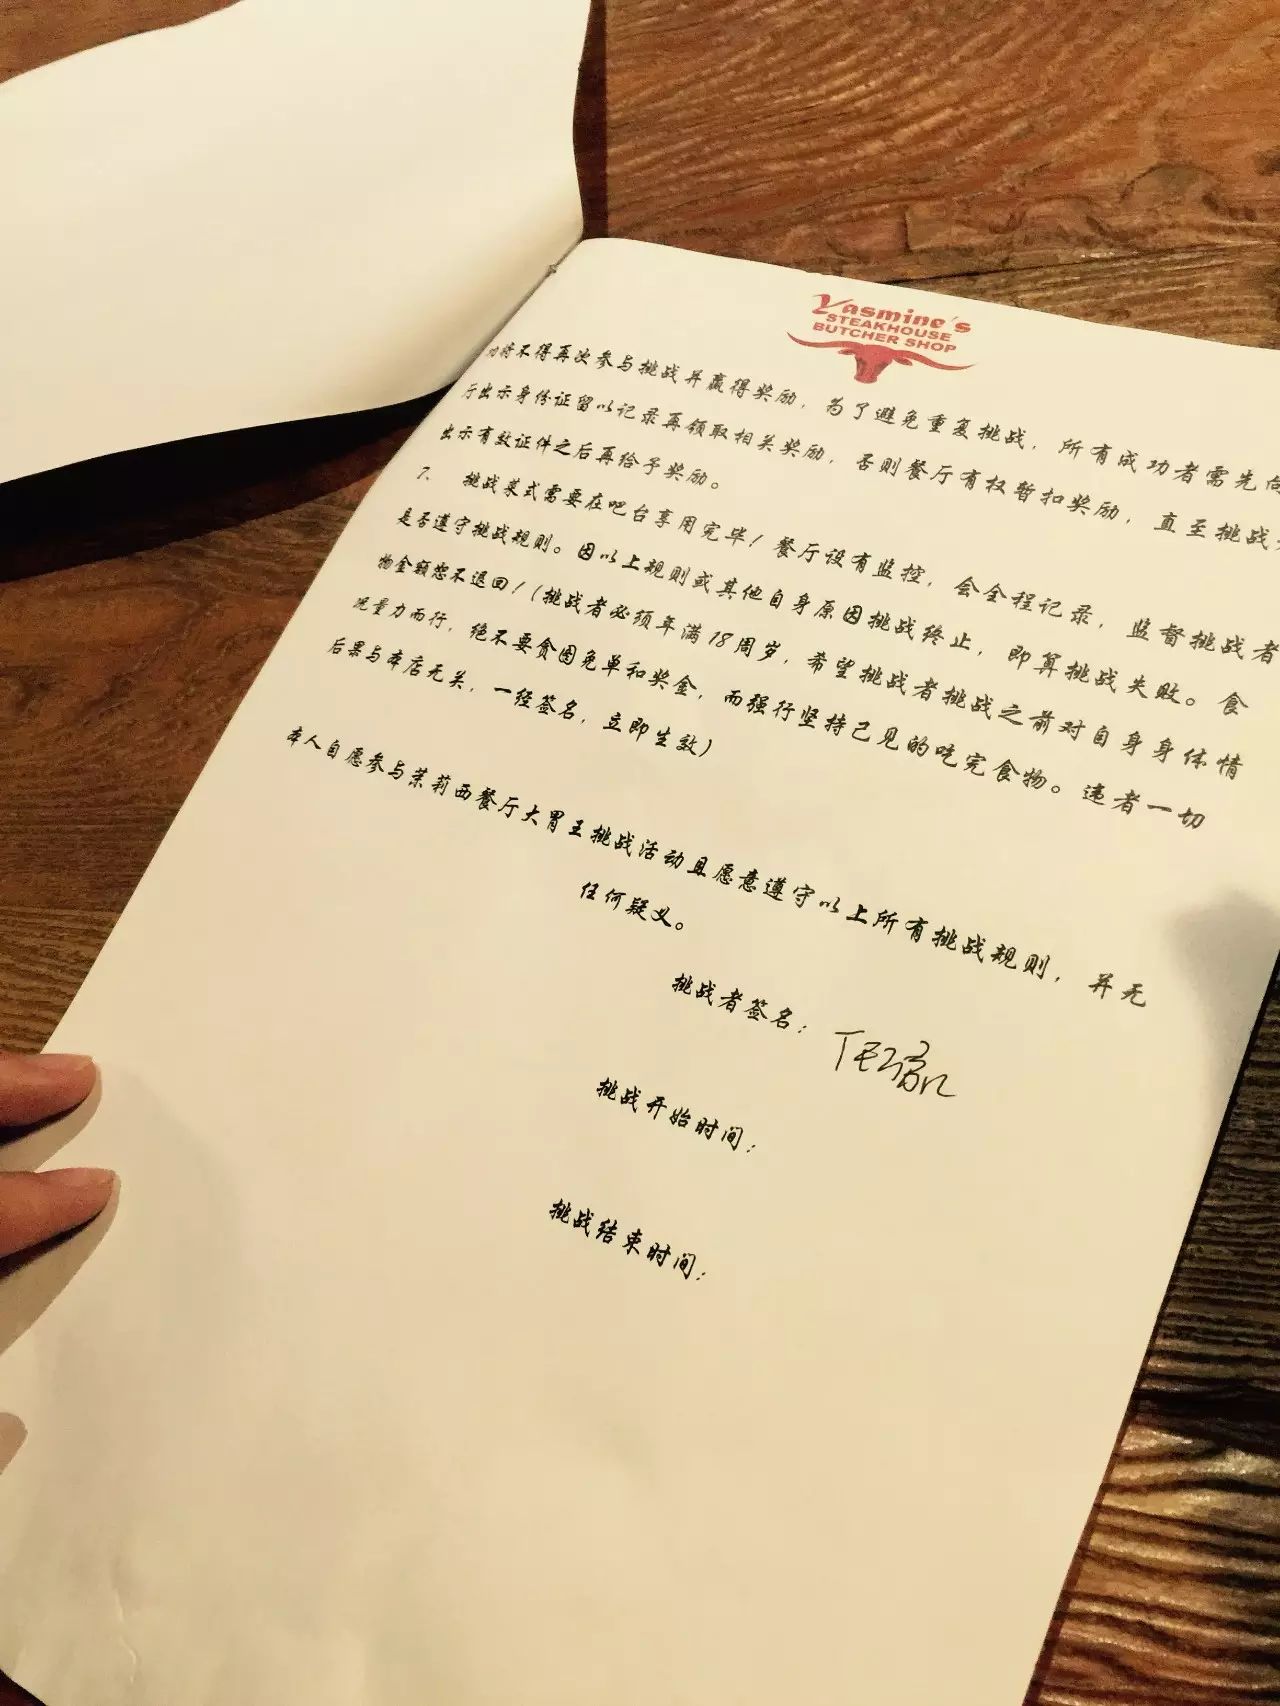 Yasmine's
STEAKHOUSE
BUTCHER SHOP
将不得再次参与挑战并赢得奖励，为了避免重复挑战，所有成功者需先向
厅出示身份证留以记录再领取相关奖励，否则餐厅有权暂扣奖励，直至挑战
出示有效证件之后再给予奖励。
7、 挑战菜式需要在吧台享用完毕！餐厅设有监控，会全程记录，监督挑战者
是否遵守挑战规则。因以上规则或其他自身原因挑战终止，即算挑战失败。食
物金额恕不退回！(挑战者必须年满18周岁，希望挑战者挑战之前对自身身体情
况量力而行，绝不要贪图免单和奖金，而强行坚持己见的吃完食物。违者一切
后果与本店无关，一经签名，立即生效)
本人自愿参与茉莉西餐厅大胃王挑战活动且愿意遵守以上所有挑战规则，并无
任何疑义。
挑战者签名：
挑战开始时间：
挑战结束时间：